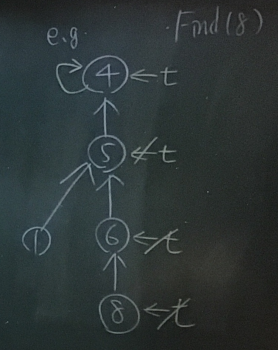 e.g. Find(8)
4 ← t
5 ← t
1 6 ← t
8 ← t